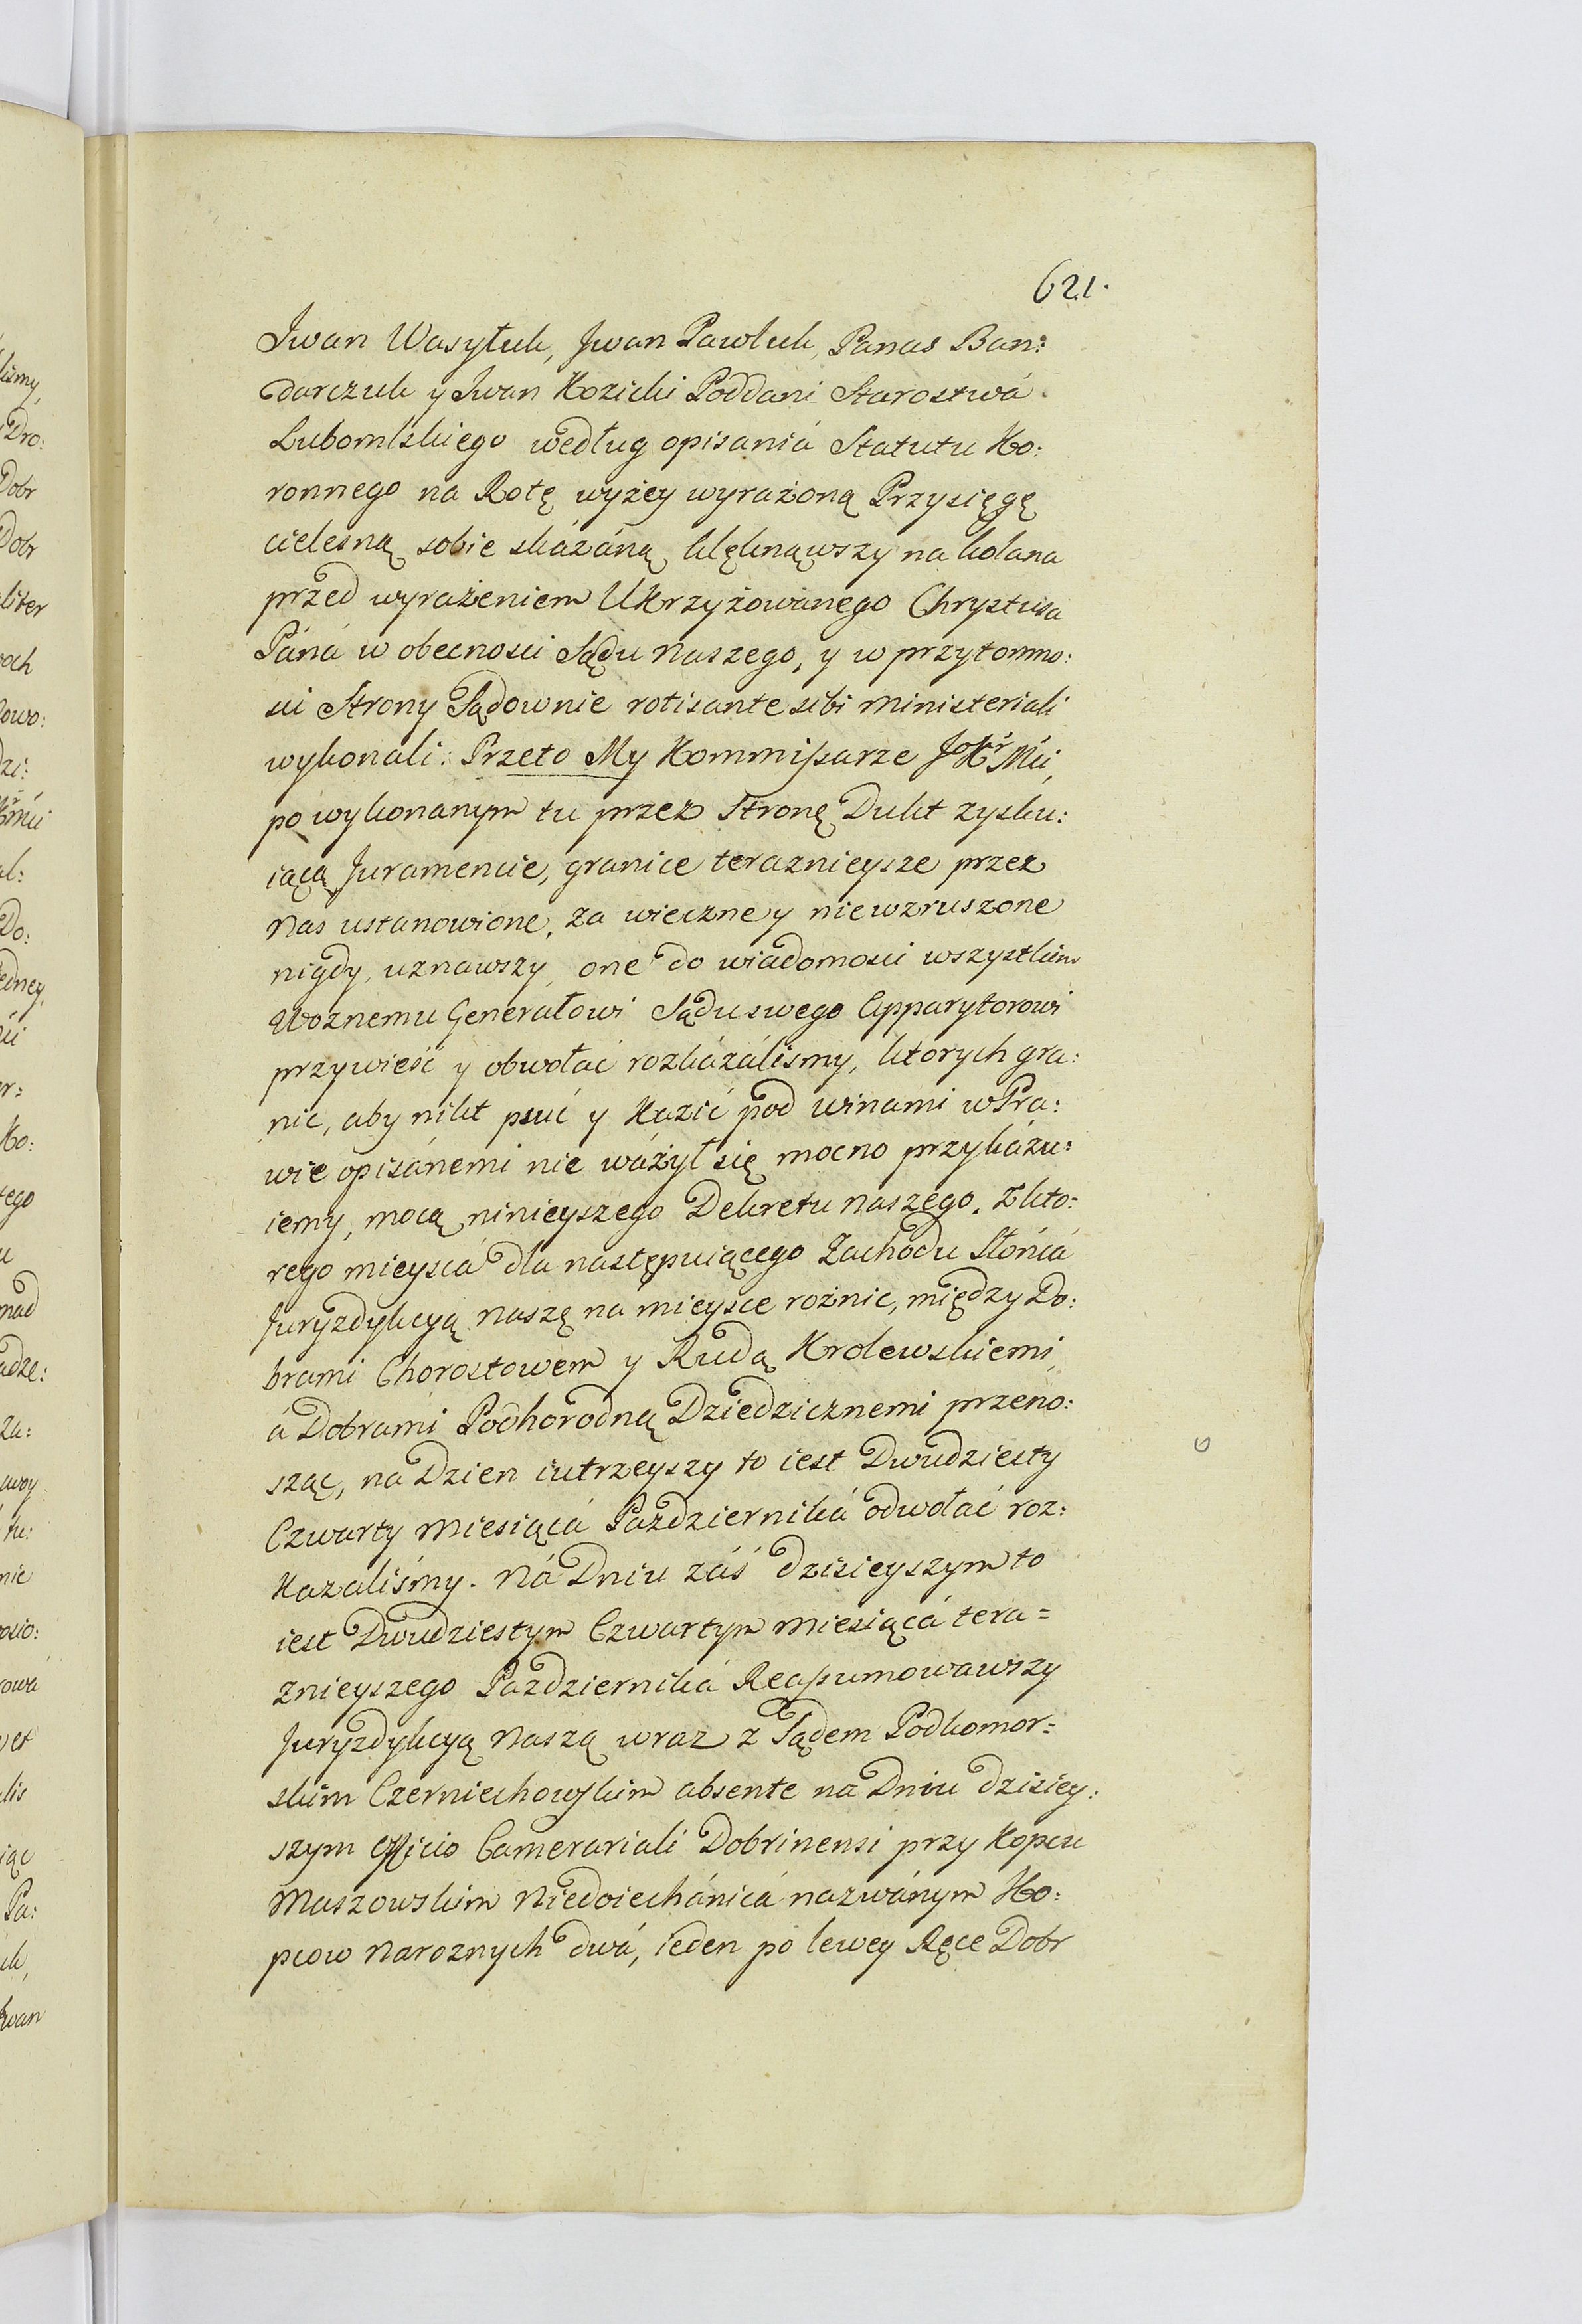 621.
Iwan Wasyluk, Jwan Pawluk, Panas Ban:
darczuk y Jwan Kozicki Poddani Starostwá
Lubomlskiego według opisaniá Statutu Ko:
ronnego na Rotę wyżey wyrażoną Przysięgę
cielesną sobie skázáną klęknąwszy na kolana
przed wyrażeniem Ukrzyżowanego Chrystusa
Páná w obecnosci Sądu naszego, y w przytomno:
sci Strony Sądownie rotisante sibi ministeriali
wykonali: Przeto My Kommissarze JoKr Mci,
po wykonanym tu przez Stronę Dukt zysku:
iącą Juramencie, granice teraznieysze przez
nas ustanowione, za wieczne y niewzruszone
nigdy, uznawszy, one do wiadomosci wszystkim
Woznemu Generałowi Sądu swego Apparytorowi
przywieść y obwołać rozkázálismy, ktorych gra:
nic, aby nikt psuć y Kazić pod winami w Pra:
wie opisánemi nie wáżył się mocno przykázu:
iemy, mocą ninieyszego Dekretu naszego. Z kto:
rego mieyscá dla następuiącego Zachodu Słońcá
Juryzdykcyą naszę na mieysce rożnic, między Do:
brami Chorostowem y Rudą Krolewskiemi,
á Dobrami Podhorodną Dziedzicznemi przeno:
sząc, na Dzien iutrzeyszy to iest Dwudziesty
Czwarty Miesiącá Pazdzierniká odwołać roz:
Kazaliśmy. Ná Dniu záś dzisieyszym to
iest Dwudziestym Czwartym Miesiącá tera=
znieyszego Pazdziernika Reassumowawszy
Juryzdykcyą Naszą wraz z Sądem Podkomor=
skim Czerniechowskim absente na Dniu dzisiey:
szym Officio Camerariali Dobrinensi przy Kopcu
Maszowskim Niedoiechánicá nazwánym Ko:
pcow Naroznych dwá, ieden po lewey Ręce Dobr